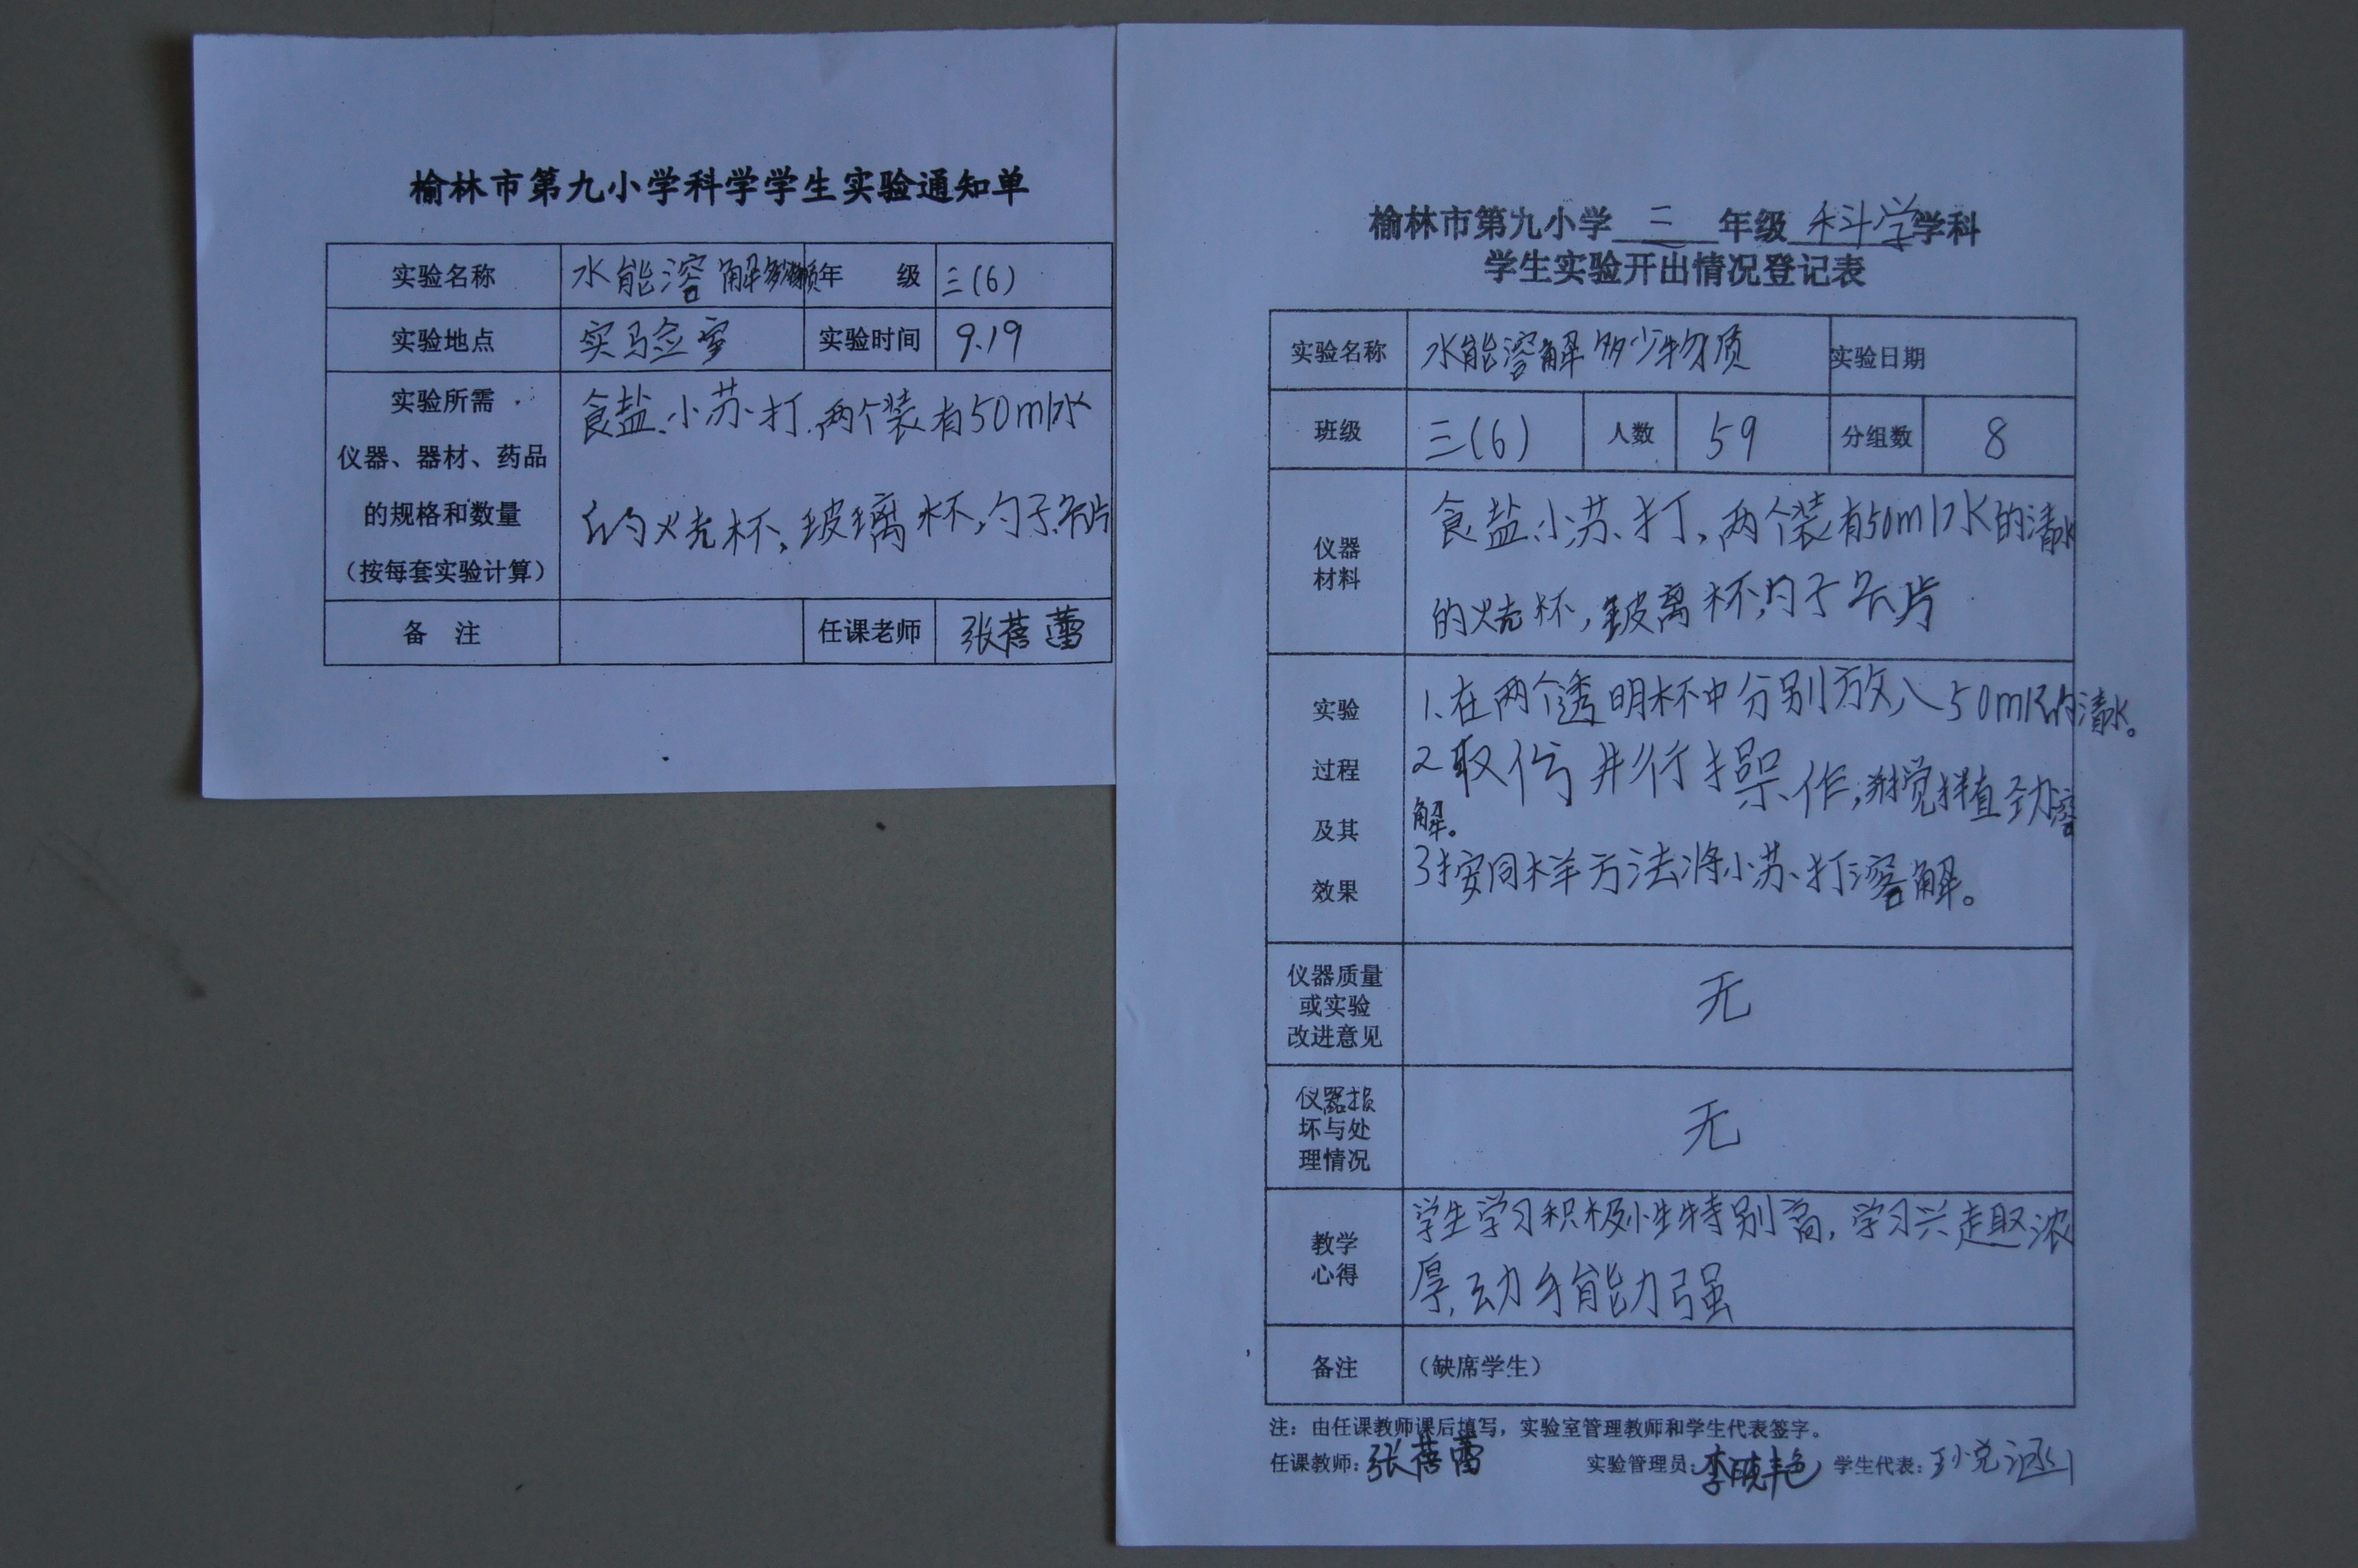 榆林市第九小学科学学生实验通知单
实验名称 水能溶解多少物质 年 级 三(6)
实验地点 实验室 实验时间 9.19
实验所需
仪器、器材、药品
的规格和数量
(按每套实验计算)
食盐、小苏打、两个装有50ml水
的烧杯,玻璃杯,勺子、卡片
备 注 任课老师 张蓓蕾
榆林市第九小学 三 年级 科学 学科
学生实验开出情况登记表
实验名称 水能溶解多少物质 实验日期
班级 三(6) 人数 59 分组数 8
仪器
材料
食盐、小苏打,两个装有50ml水的清水
的烧杯,玻离杯,勺子
实验
过程
及其
效果
1、在两个透明杯中分别放入50ml的清水。
2取 并行操作, 拌直到溶
解。
3按同样方法将小苏打溶解。
仪器质量
或实验
改进意见
无
仪器损
坏与处
理情况
无
教学
心得
学生学习积极性特别高,学习兴趣浓
厚,动手能力强
备注 (缺席学生)
注:由任课教师课后填写,实验室管理教师和学生代表签字。
任课教师:张蓓蕾 实验管理员:李晓艳 学生代表: